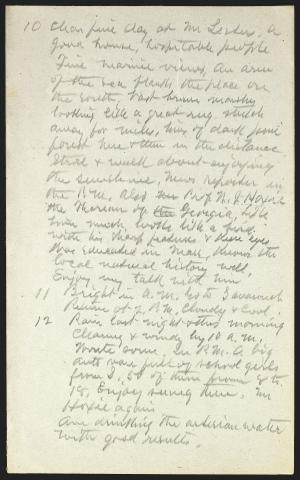 10 Clear fine day at Mr Lesters, a
good house, hospitable people
Fine marine views, an arm
of the sea flanks the place on
the south, vast brown marshes
looking like a great rug stretch
away for miles, lines of dark pine
forest here & there in the distance
Stroll & walk about enjoying
the sunshine. News reporter in
the P.M. also Prof H. J. Hoxie
the Thoreau of Georgia, little
brown much looks like a bird
with his sharp features & dark eyes
Was educated in Mass, knows the
local natural history well.
Enjoy my talk with him
11 Bright in A.M. Go to Savannah
Return at 2 P.M. Cloudy & Cool.
12 Rain last night & this morning
Clearing & windy by 10 a.m.
Wrote some. In P.M. a big
auto van full of school girls
from S, 50 of them from 8 to
18, Enjoy seeing them. Mr
Hoxie again
Am drinking the artesian water
with good results.